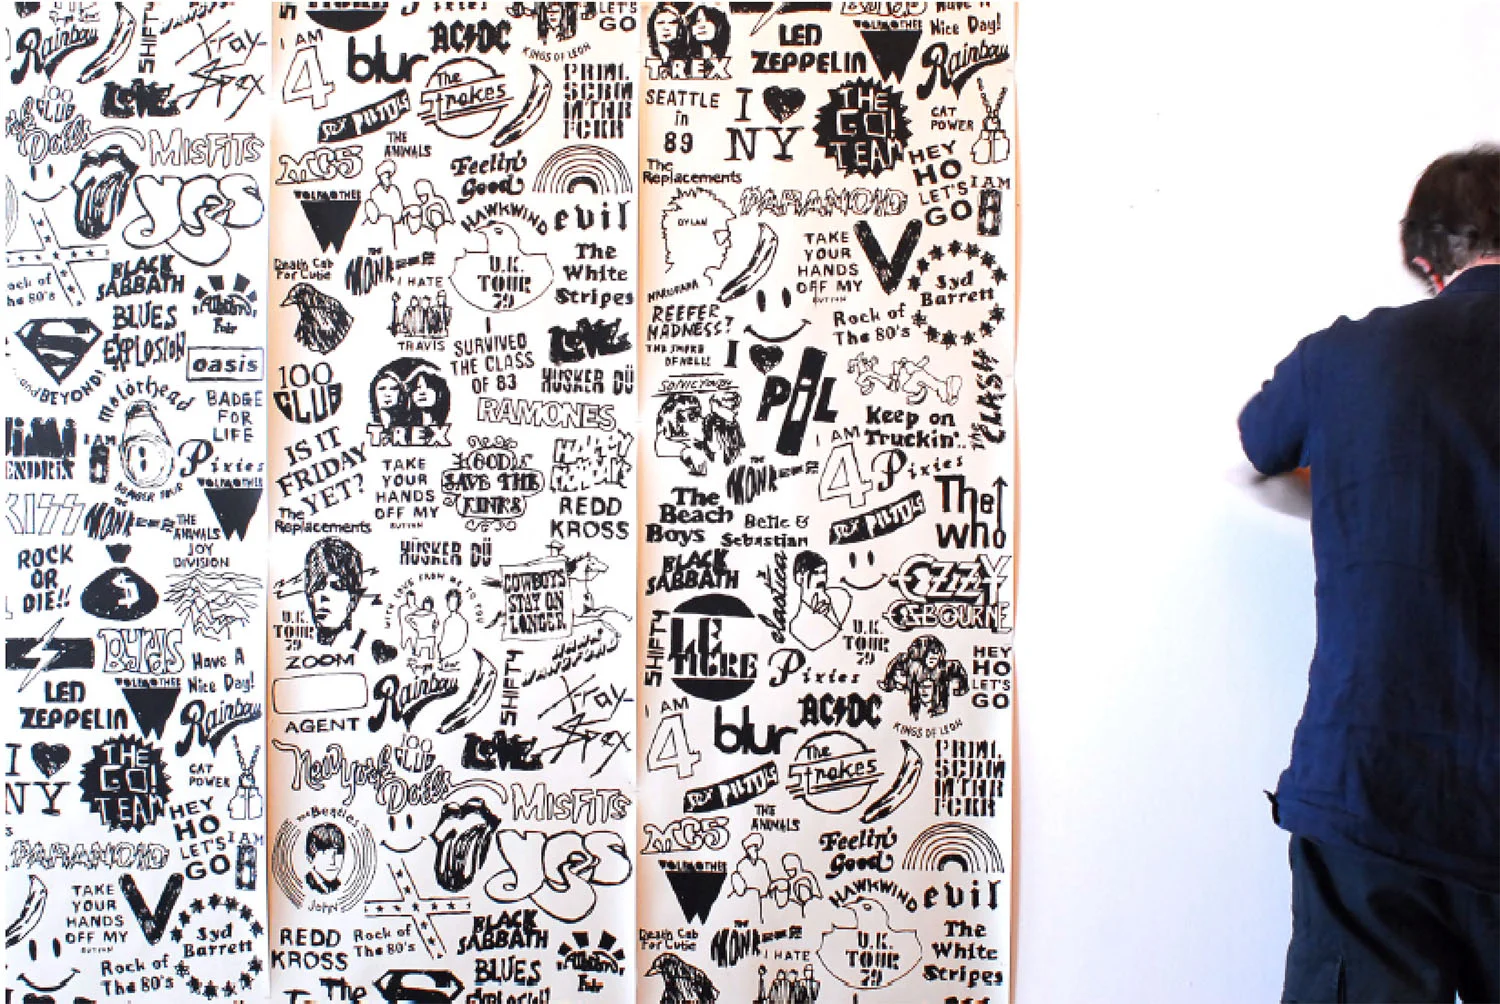 Rainbow
SHIFTY
X-ray
Spex
100
CLUB
LOVE
Dolls
MISFITS
YES
Rock of
The 80's
BLACK
SABBATH
BLUES
EXPLOSION
oasis
and BEYOND!
Motörhead
BADGE
FOR
LIFE
HENDRIX
I AM
Pixies
KISS
MONKEES
THE
ANIMALS
WOLFMOTHER
ROCK
OR
DIE!!
$
JOY
DIVISION
BYRDS
HAVE A
Nice Day!
LED
ZEPPELIN
WOLFMOTHER
Rainbow
I
NY
THE
GO!
TEAM
CAT
POWER
HEY
HO
LET'S
GO
I AM
PARANOID
TAKE
YOUR
HANDS
OFF MY
BUTTON
V
Syd
Barrett
Rock of
The 80's
I AM
4
blur
AC/DC
KINGS OF LEON
LET'S
GO
SEX PISTOLS
The
Strokes
PRIML
SCRM
MTHR
FCKR
MC5
THE
ANIMALS
Feelin'
Good
WOLFMOTHER
HAWKWIND
evil
Death Cab
For Cutie
THE
MONKEES
I HATE
U.K.
TOUR
79
The
White
Stripes
TRAVIS
I
SURVIVED
THE CLASS
OF 83
LOVE
HÜSKER DÜ
100
CLUB
T.REX
RAMONES
IS IT
FRIDAY
YET?
TAKE
YOUR
HANDS
OFF MY
BUTTON
GODS
SAVE THE
KINKS
HAPPY
MONDAYS
The
Replacements
REDD
KROSS
HÜSKER DÜ
WITH LOVE FROM ME TO YOU
COWBOYS
STAY ON
LONGER
U.K.
TOUR
79
I
Ringo Starr
ZOOM
AGENT
Rainbow
SHIFTY
X-ray
Spex
New York
Dolls
100
CLUB
LOVE
MISFITS
The Beatles
John
YES
REDD
KROSS
Rock of
The 80's
BLACK
SABBATH
BLUES
EXPLOSION
The
T.REX
LED
ZEPPELIN
WOLFMOTHER
HAVE A
Nice Day!
Rainbow
SEATTLE
in
89
I
NY
THE
GO!
TEAM
CAT
POWER
HEY
HO
LET'S
GO
I AM
The
Replacements
DYLAN
PARANOID
TAKE
YOUR
HANDS
OFF MY
BUTTON
V
Syd
Barrett
REEFER
MADNESS?
THE SMOKE
OF HELL!
Rock of
The 80's
I
SONIC YOUTH
PiL
Keep on
Truckin'..
THE CLASH
I AM
4
Pixies
THE
MONKEES
The
Beach
Boys
Belle &
Sebastian
SEX PISTOLS
The
Who
BLACK
SABBATH
elastica
OZZY
OSBOURNE
SHIFTY
LE
TIGRE
Pixies
U.K.
TOUR
79
HEY
HO
LET'S
GO
I AM
4
blur
AC/DC
KINGS OF LEON
SEX PISTOLS
The
Strokes
PRIML
SCRM
MTHR
FCKR
MC5
THE
ANIMALS
Feelin'
Good
WOLFMOTHER
HAWKWIND
evil
Death Cab
For Cutie
THE
MONKEES
I HATE
U.K.
TOUR
79
The
White
Stripes